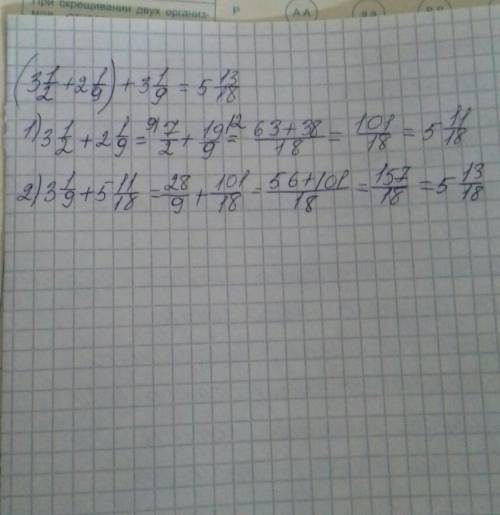 При скрещивании двух организ-
Р АА аа
(3 1/2 + 2 1/9) + 3 1/9 = 5 13/18
1) 3 1/2 + 2 1/9 = 9) 7/2 + 19/9 (2 = 63+38/18 = 101/18 = 5 11/18
2) 3 1/9 + 5 11/18 = 28/9 + 101/18 = 56+101/18 = 157/18 = 5 13/18